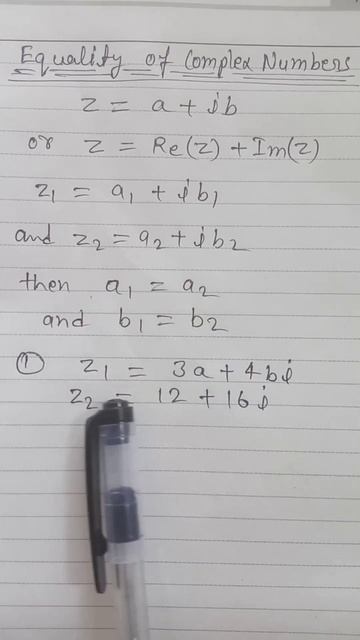 Equality of Complex Numbers
z = a + ib
or z = Re(z) + Im(z)
z₁ = a₁ + ib₁
and z₂ = a₂ + ib₂
then a₁ = a₂
and b₁ = b₂
① z₁ = 3a + 4bi
z₂ = 12 + 16i